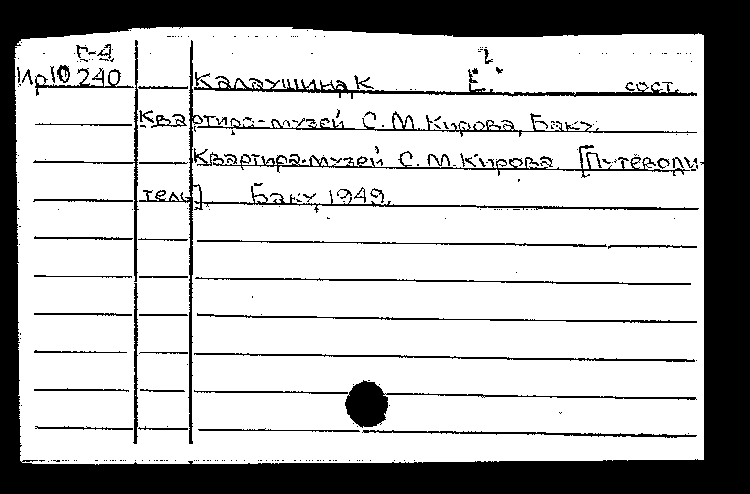 Г-4
Ир10240
Калаушина, К. Е. сост.
Квартира-музей С.М. Кирова, Баку.
Квартира-музей С.М. Кирова. [Путеводи-
тель]. Баку, 1949.